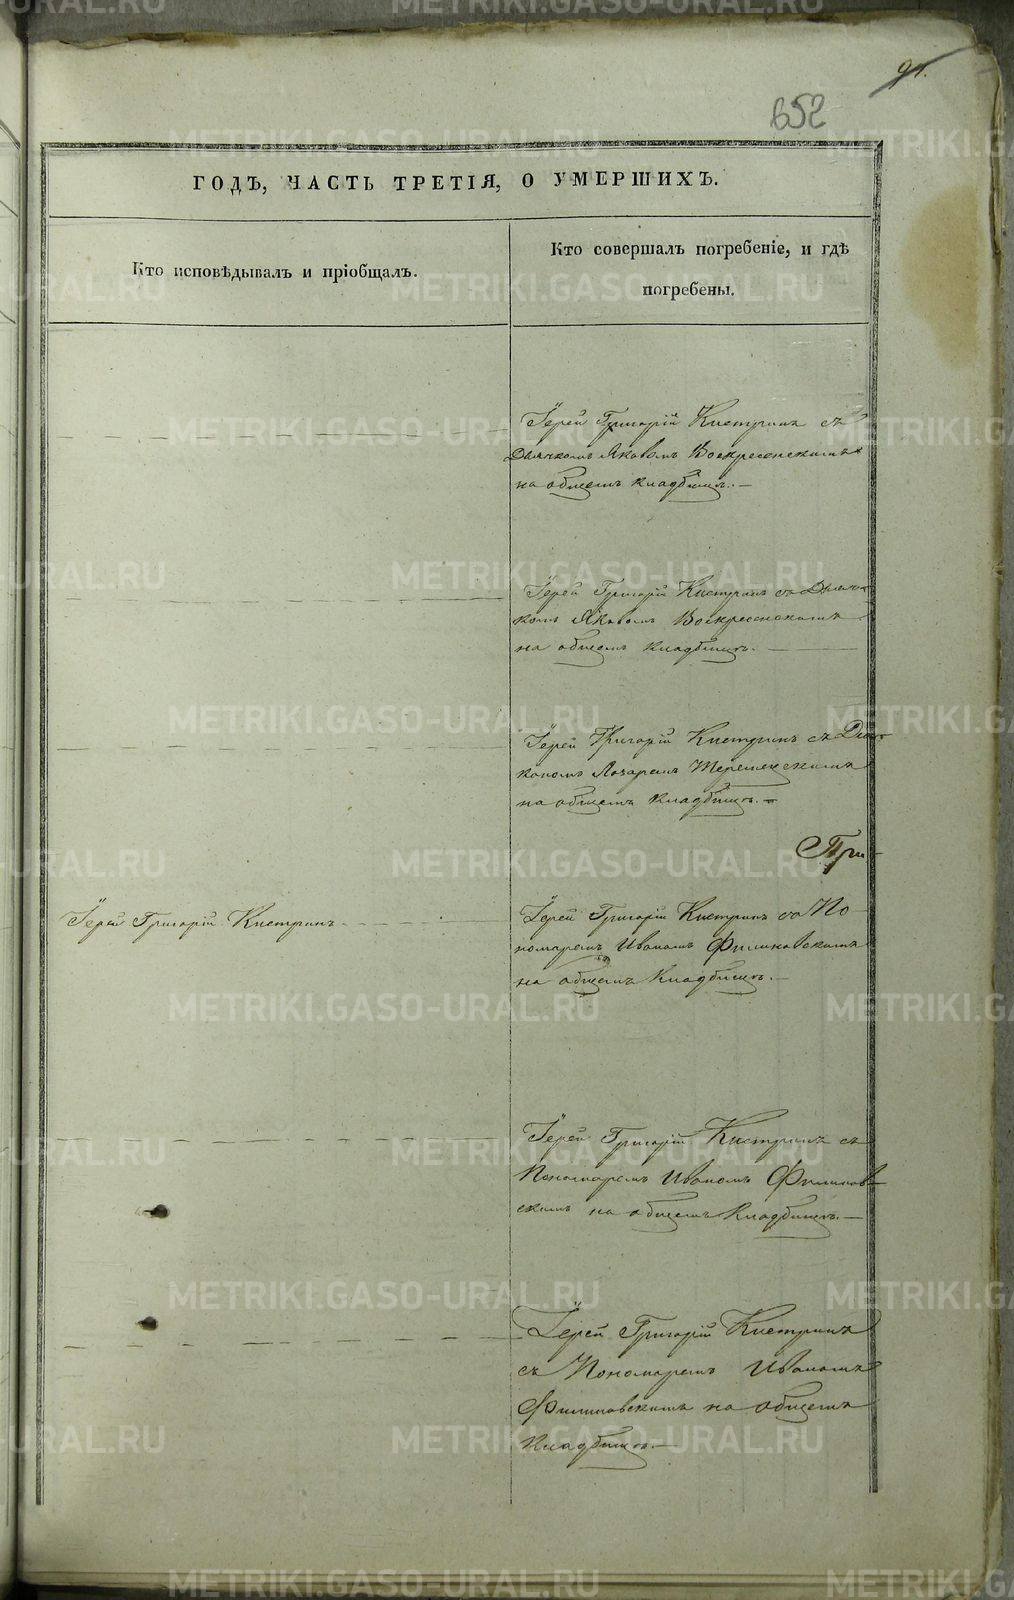 652
ГОДЪ, ЧАСТЬ ТРЕТІЯ, О УМЕРШИХЪ.
Кто исповѣдывалъ и пріобщалъ.
Кто совершалъ погребеніе, и гдѣ
погребены.
Іерей Григорій Кистринъ съ
Дьячкомъ Яковомъ Воскресенскимъ
на общемъ кладбищѣ.—
Іерей Григорій Кистринъ съ Дьяч-
комъ Яковомъ Воскресенскимъ
на общемъ кладбищѣ.
Іерей Григорій Кистринъ съ Діа-
кономъ Лазаремъ
на общемъ кладбищѣ.—
При-
Іерей Григорій Кистринъ
Іерей Григорій Кистринъ съ По-
номаремъ Иваномъ Филиповскимъ
на общемъ кладбищѣ.—
Іерей Григорій Кистринъ съ
Пономаремъ Иваномъ Филипов-
скимъ на общемъ кладбищѣ.—
Іерей Григорій Кистринъ
съ Пономаремъ Иваномъ
Филиповскимъ на общемъ
кладбищѣ.—
METRIKI.GASO-URAL.RU